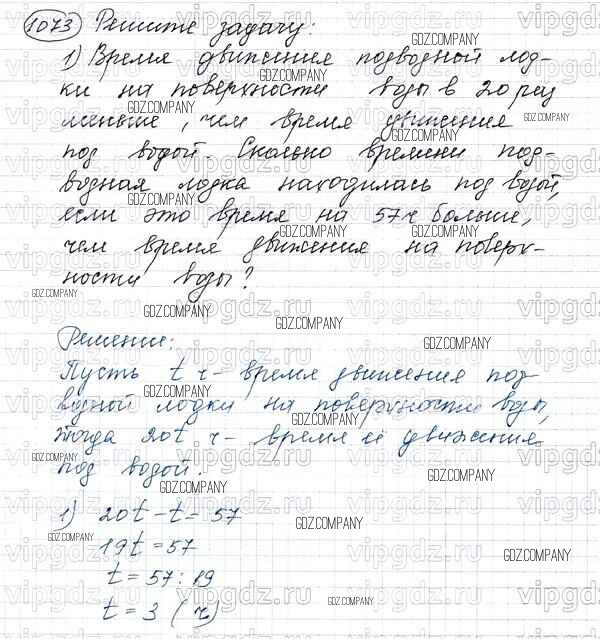 1073 Решите задачу:
1) Время движения подводной лод-
ки на поверхности воды в 20 раз
меньше, чем время движения
под водой. Сколько времени под-
водная лодка находилась под водой,
если это время на 57 ч больше,
чем время движения на поверх-
ности воды?
Решение:
Пусть t ч - время движения под
водной лодки на поверхности воды,
тогда 20t ч - время её движения
под водой.
1) 20t - t = 57
19t = 57
t = 57 : 19
t = 3 (ч)
GDZ.COMPANY
vipgdz.ru